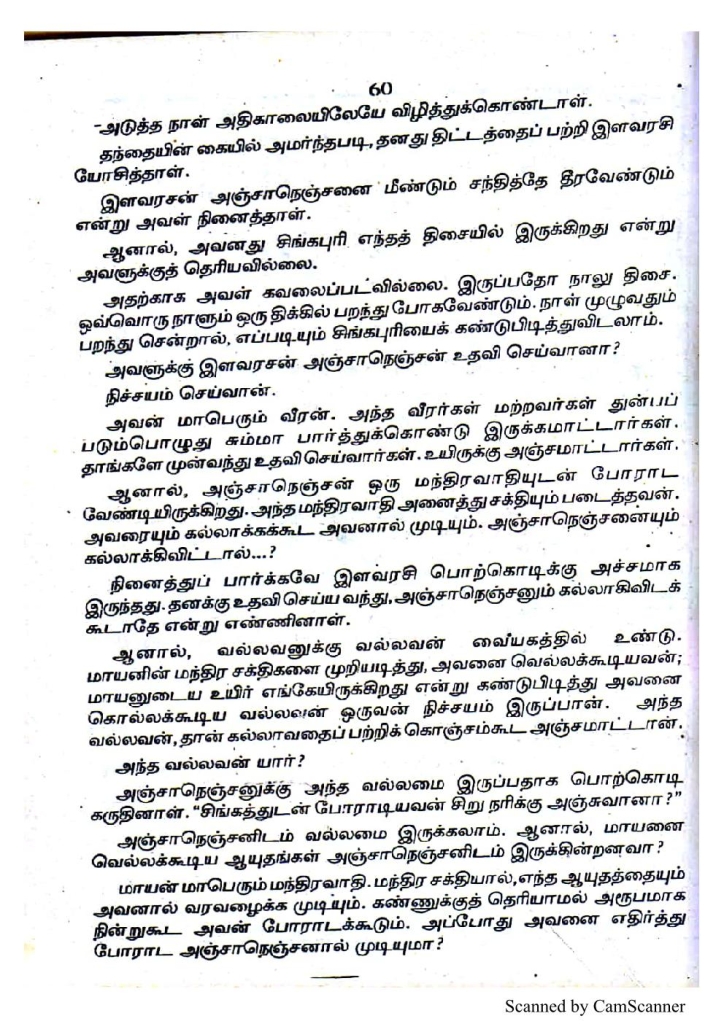 60
-அடுத்த நாள் அதிகாலையிலேயே விழித்துக்கொண்டாள்.
தந்தையின் கையில் அமர்ந்தபடி, தனது திட்டத்தைப் பற்றி இளவரசி
யோசித்தாள்.
இளவரசன் அஞ்சாநெஞ்சனை மீண்டும் சந்தித்தே தீரவேண்டும்
என்று அவள் நினைத்தாள்.
ஆனால், அவனது சிங்கபுரி எந்தத் திசையில் இருக்கிறது என்று
அவளுக்குத் தெரியவில்லை.
அதற்காக அவள் கவலைப்படவில்லை. இருப்பதோ நாலு திசை.
ஒவ்வொரு நாளும் ஒரு திக்கில் பறந்து போகவேண்டும். நாள் முழுவதும்
பறந்து சென்றால், எப்படியும் சிங்கபுரியைக் கண்டுபிடித்துவிடலாம்.
அவளுக்கு இளவரசன் அஞ்சாநெஞ்சன் உதவி செய்வானா?
நிச்சயம் செய்வான்.
அவன் மாபெரும் வீரன். அந்த வீரர்கள் மற்றவர்கள் துன்பப்
படும்பொழுது சும்மா பார்த்துக்கொண்டு இருக்கமாட்டார்கள்.
தாங்களே முன்வந்து உதவி செய்வார்கள். உயிருக்கு அஞ்சமாட்டார்கள்.
ஆனால், அஞ்சாநெஞ்சன் ஒரு மந்திரவாதியுடன் போராட
வேண்டியிருக்கிறது. அந்த மந்திரவாதி அனைத்து சக்தியும் படைத்தவன்.
அவரையும் கல்லாக்கக்கூட அவனால் முடியும். அஞ்சாநெஞ்சனையும்
கல்லாக்கிவிட்டால்...?
நினைத்துப் பார்க்கவே இளவரசி பொற்கொடிக்கு அச்சமாக
இருந்தது. தனக்கு உதவி செய்ய வந்து, அஞ்சாநெஞ்சனும் கல்லாகிவிடக்
கூடாதே என்று எண்ணினாள்.
ஆனால், வல்லவனுக்கு வல்லவன் வையகத்தில் உண்டு.
மாயனின் மந்திர சக்திகளை முறியடித்து, அவனை வெல்லக்கூடியவன்;
மாயனுடைய உயிர் எங்கேயிருக்கிறது என்று கண்டுபிடித்து அவனை
கொல்லக்கூடிய வல்லவன் ஒருவன் நிச்சயம் இருப்பான். அந்த
வல்லவன், தான் கல்லாவதைப் பற்றிக் கொஞ்சம்கூட அஞ்சமாட்டான்.
அந்த வல்லவன் யார்?
அஞ்சாநெஞ்சனுக்கு அந்த வல்லமை இருப்பதாக பொற்கொடி
கருதினாள். "சிங்கத்துடன் போராடியவன் சிறு நரிக்கு அஞ்சுவானா?"
அஞ்சாநெஞ்சனிடம் வல்லமை இருக்கலாம். ஆனால், மாயனை
வெல்லக்கூடிய ஆயுதங்கள் அஞ்சாநெஞ்சனிடம் இருக்கின்றனவா?
மாயன் மாபெரும் மந்திரவாதி. மந்திர சக்தியால், எந்த ஆயுதத்தையும்
அவனால் வரவழைக்க முடியும். கண்ணுக்குத் தெரியாமல் அரூபமாக
நின்றுகூட அவன் போராடக்கூடும். அப்போது அவனை எதிர்த்து
போராட அஞ்சாநெஞ்சனால் முடியுமா?
Scanned by CamScanner